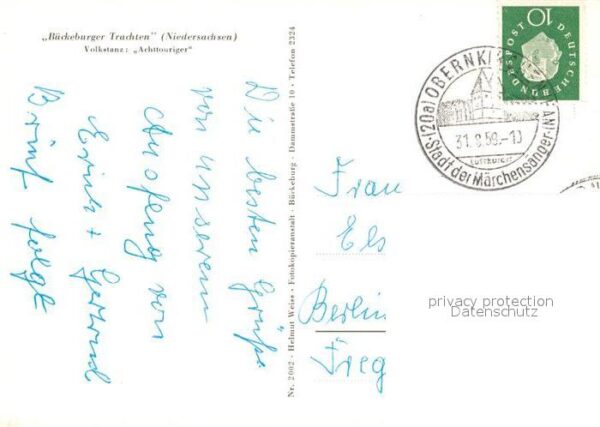 „Bückeburger Trachten" (Niedersachsen)
Volkstanz: „Achttouriger"
Die besten Grüße
von unserem
Ausflug von
Erich + Gertrud
Brief folgt
Nr. 2002 · Helmut Weiss · Fotokopieranstalt · Bückeburg · Dammstraße 10 · Telefon 2324
10
DEUTSCHE BUNDESPOST
(20a) OBERNKI
AN)
31.8.59.-10
Luftkurort
Stadt der Märchensänger
Frau
Els
Berlin
Frieg
privacy protection
Datenschutz